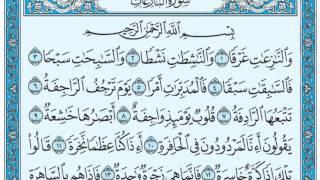 سورة النازعات
بِسْمِ اللَّهِ الرَّحْمَٰنِ الرَّحِيمِ
وَالنَّازِعَاتِ غَرْقًا ١ وَالنَّاشِطَاتِ نَشْطًا ٢ وَالسَّابِحَاتِ سَبْحًا ٣
فَالسَّابِقَاتِ سَبْقًا ٤ فَالْمُدَبِّرَاتِ أَمْرًا ٥ يَوْمَ تَرْجُفُ الرَّاجِفَةُ ٦
تَتْبَعُهَا الرَّادِفَةُ ٧ قُلُوبٌ يَوْمَئِذٍ وَاجِفَةٌ ٨ أَبْصَارُهَا خَاشِعَةٌ ٩
يَقُولُونَ أَءِنَّا لَمَرْدُودُونَ فِي الْحَافِرَةِ ١٠ أَءِذَا كُنَّا عِظَامًا نَّخِرَةً ١١ قَالُوا
تِلْكَ إِذًا كَرَّةٌ خَاسِرَةٌ ١٢ فَإِنَّمَا هِيَ زَجْرَةٌ وَاحِدَةٌ ١٣ فَإِذَا هُم بِالسَّاهِرَةِ